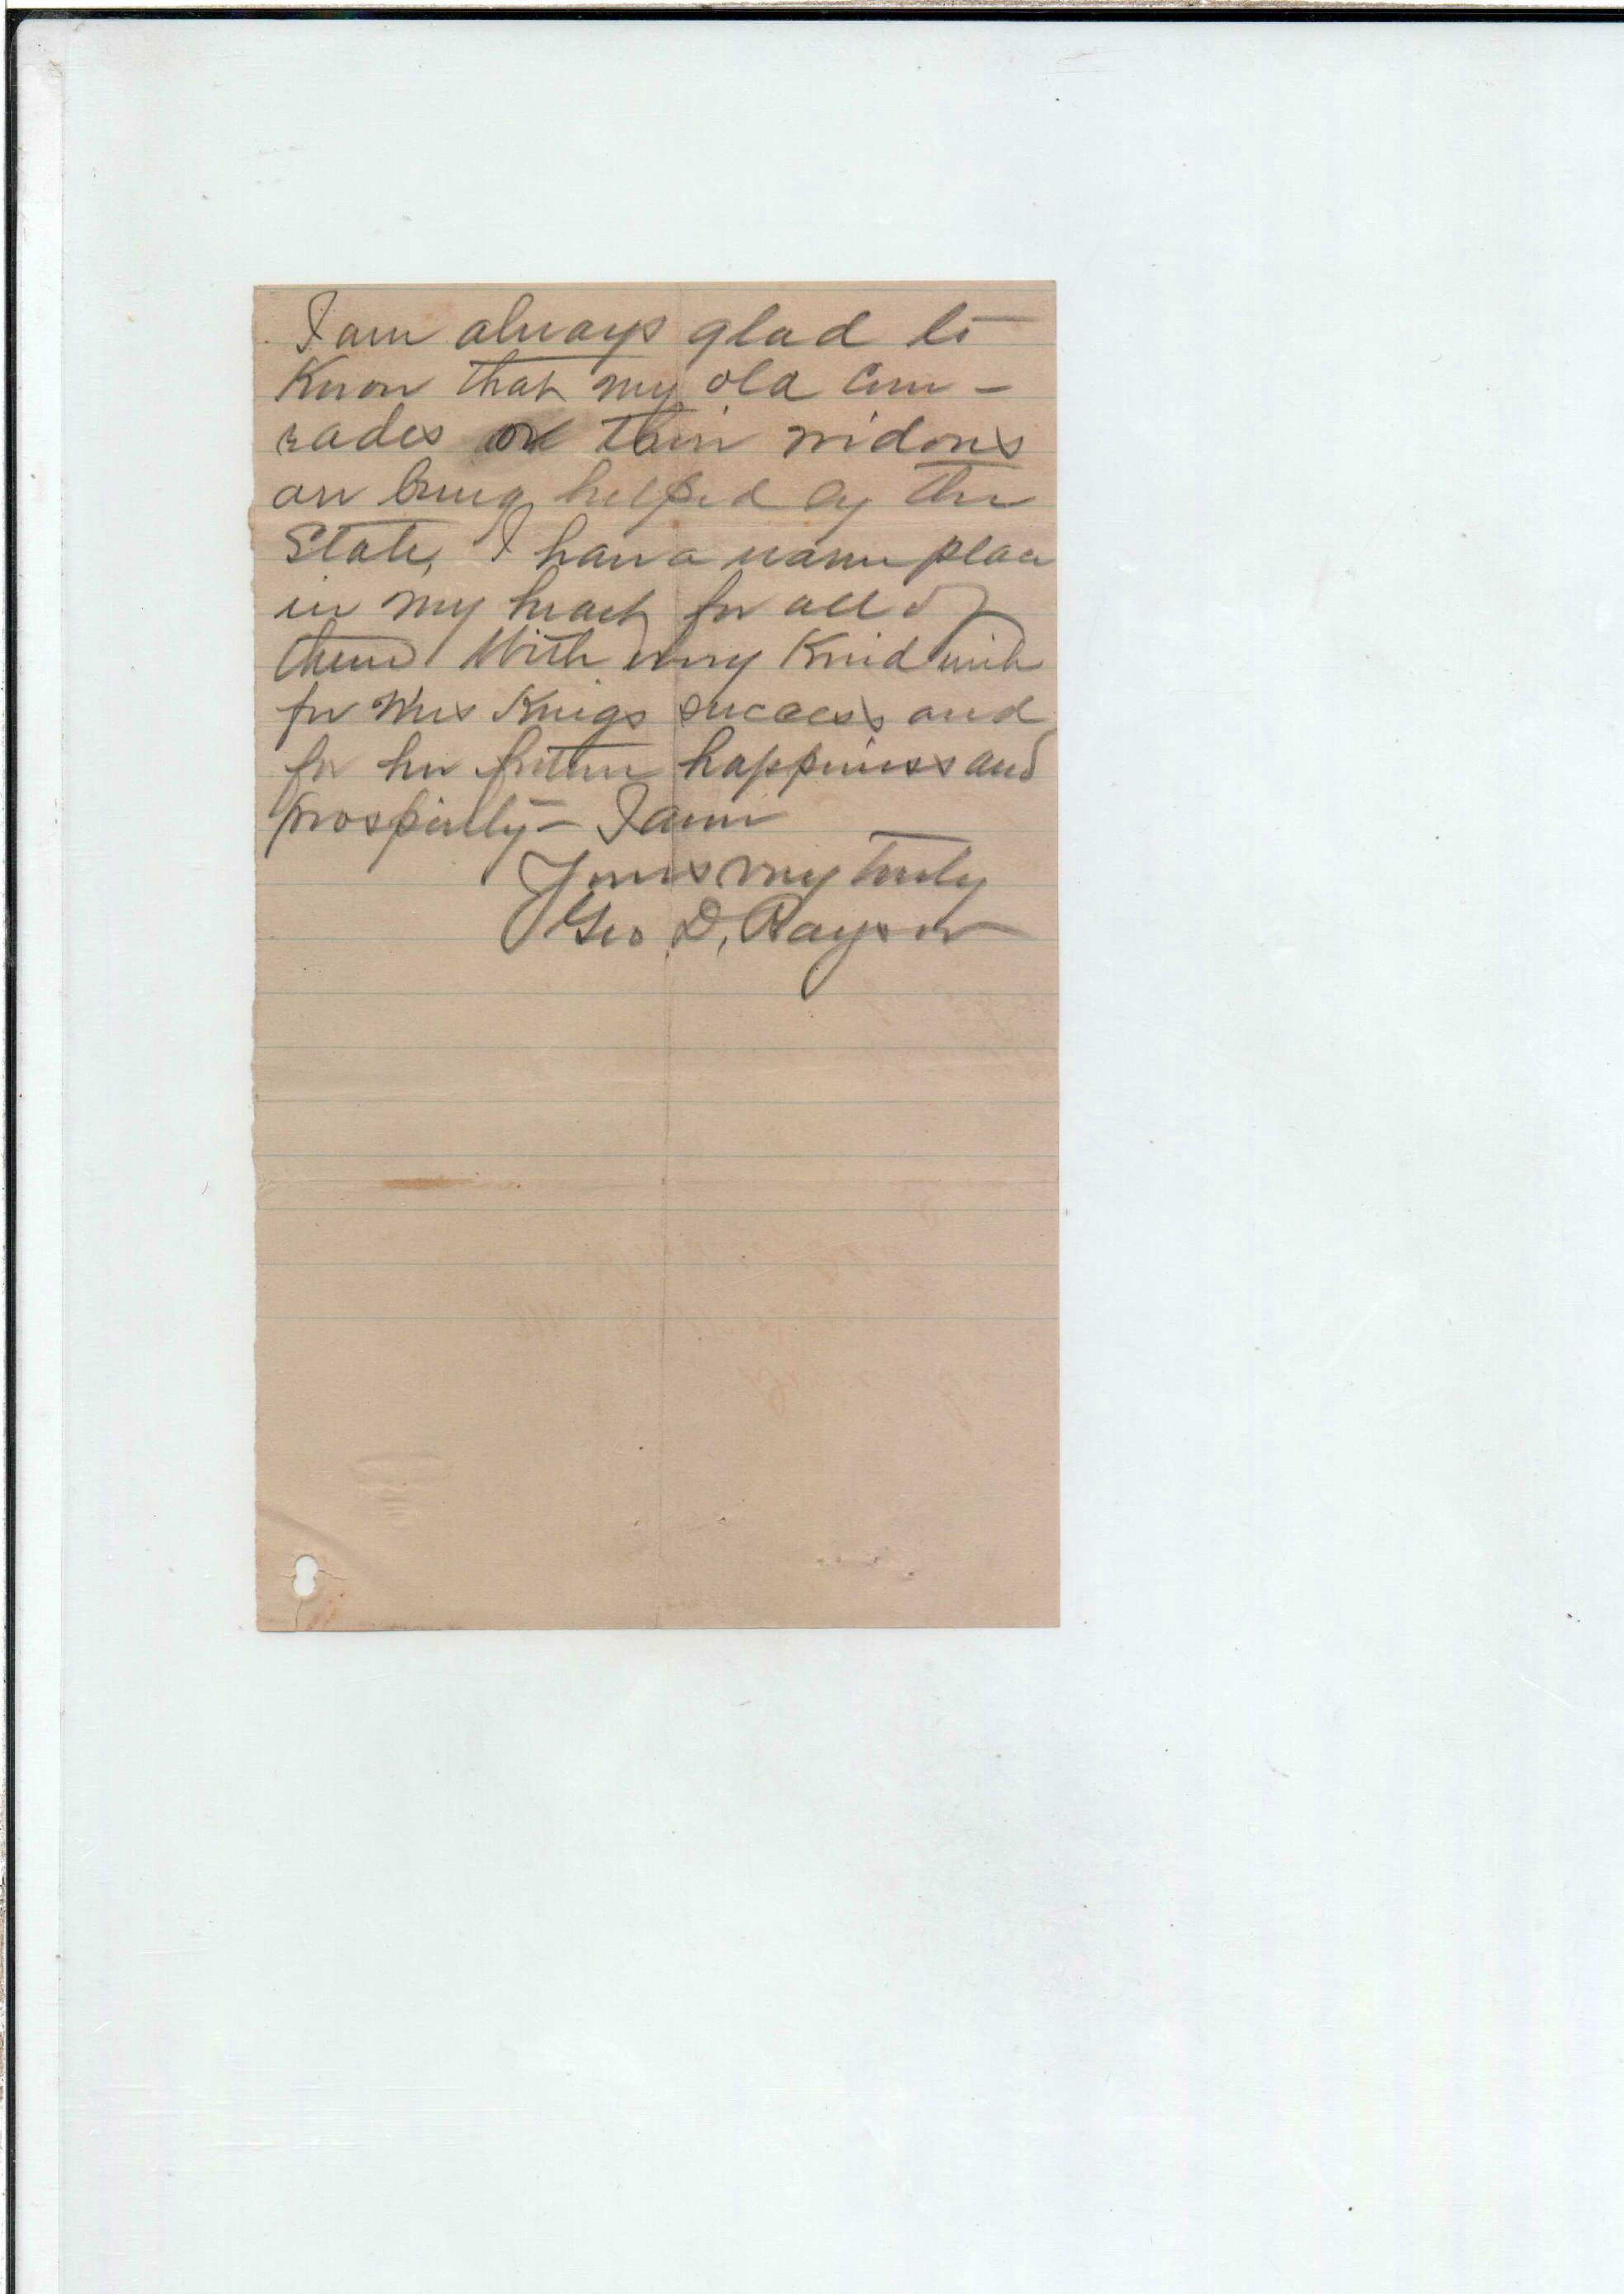 I am always glad to
Know that my old Com-
rades or their widows
are being helped by the
State, I have a warm place
in my heart for all of
them With every Kind wish
for Mrs Kings success and
for her future happiness and
prosperity - I am
Yours very truly
Geo D. Raysor